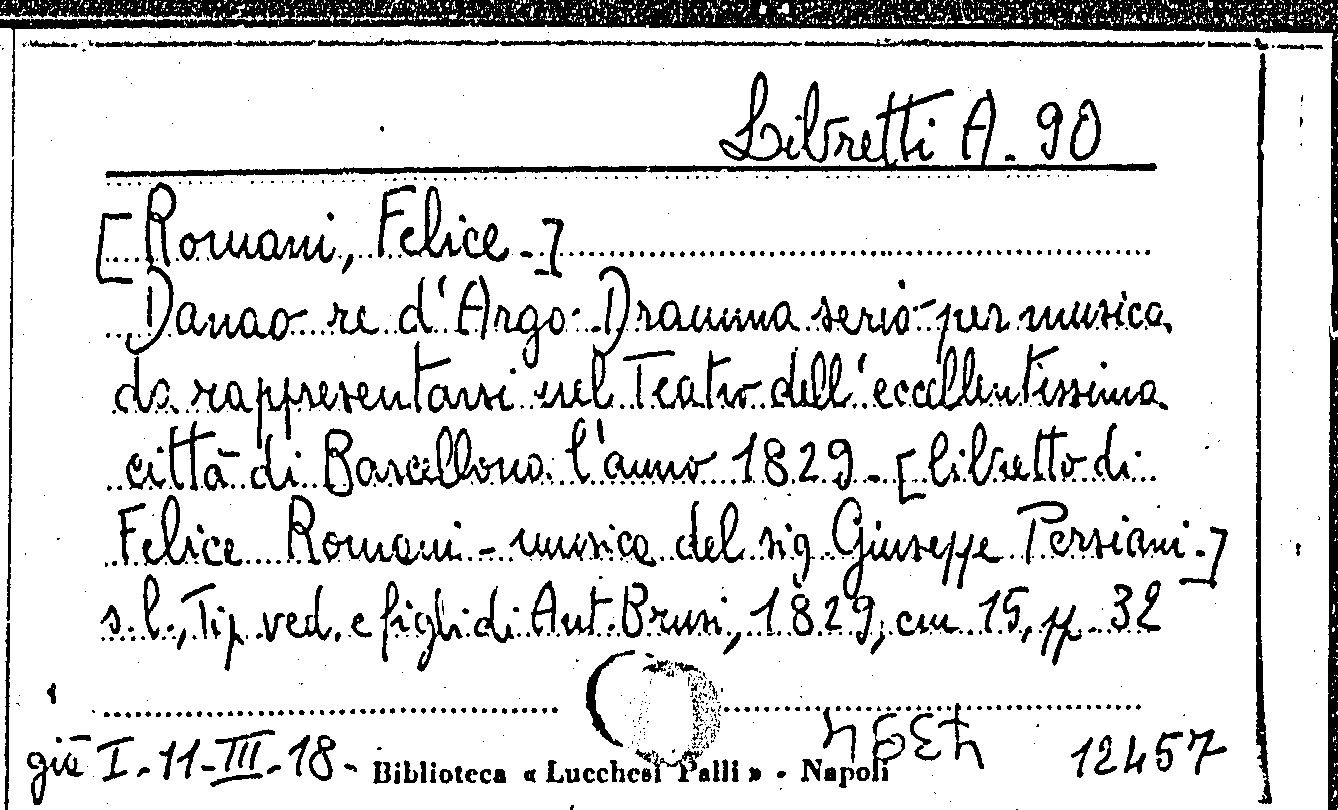 Libretti A. 90
[Romani, Felice.]
Danao re d'Argo. Dramma serio per musica
da rappresentarsi nel Teatro dell'eccellentissima
città di Barcellona l'anno 1829. [libretto di
Felice Romani - musica del sig. Giuseppe Persiani.]
s.l., Tip. ved. e figli di Ant. Brusi, 1829, cm 15, pp. 32
già I.-11-III.-18- Biblioteca « Lucchesi Palli » - Napoli 12457